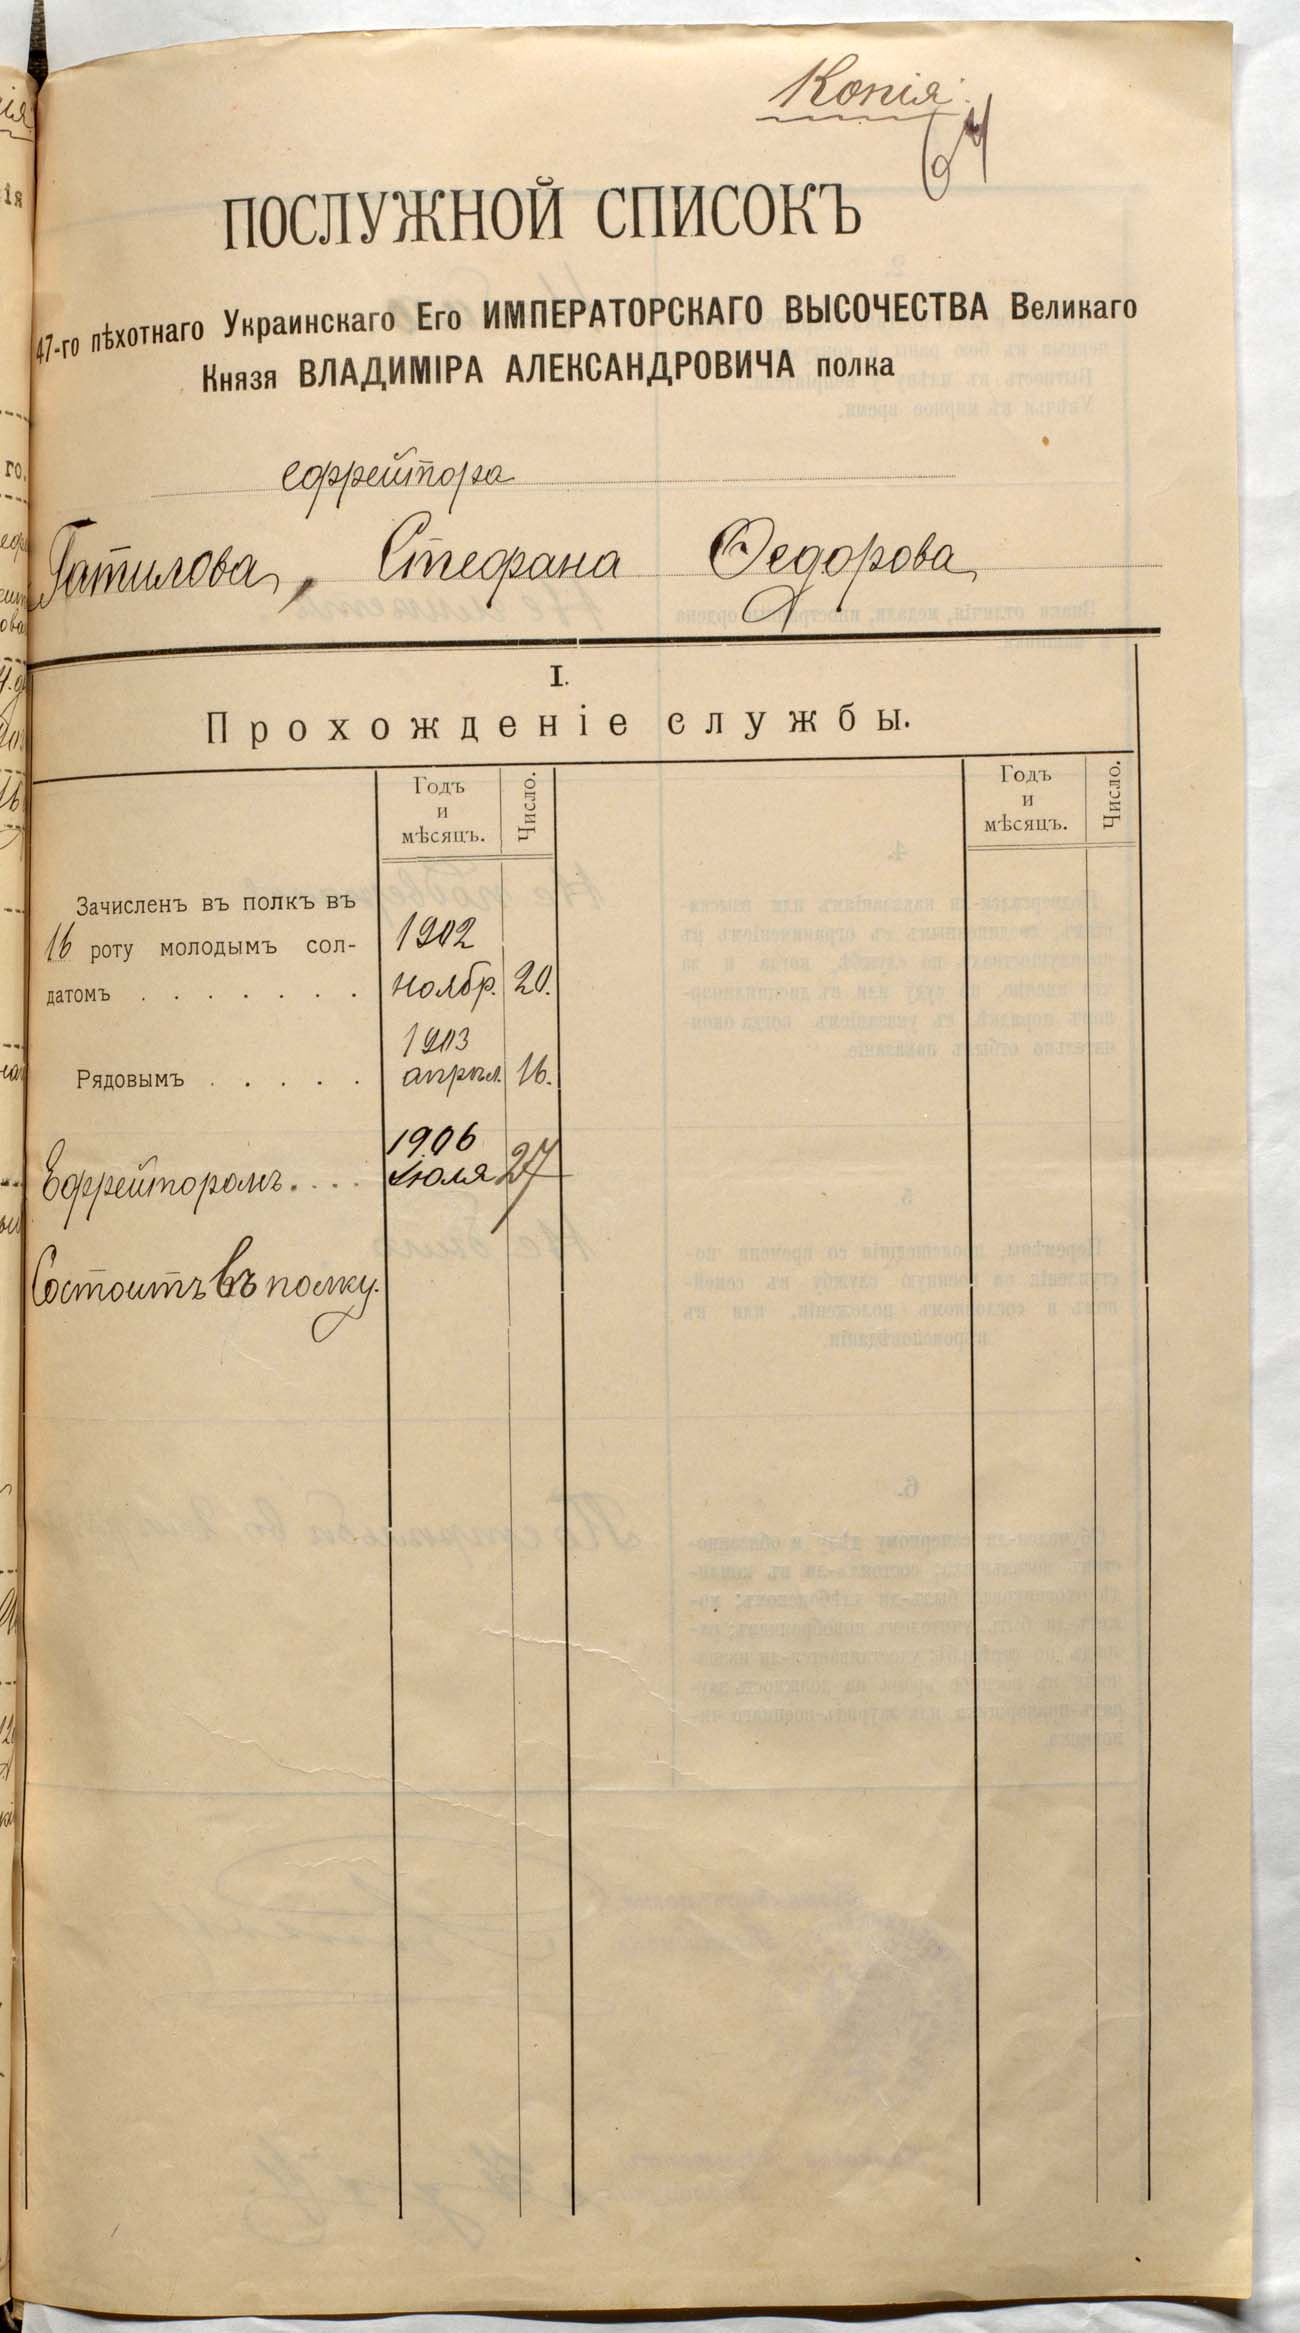 Копія
64
ПОСЛУЖНОЙ СПИСОКЪ
47-го пѣхотнаго Украинскаго Его ИМПЕРАТОРСКАГО ВЫСОЧЕСТВА Великаго
Князя ВЛАДИМІРА АЛЕКСАНДРОВИЧА полка
ефрейтора
Гатилова, Стефана Федорова
I.
Прохожденіе службы.
Годъ и мѣсяцъ. Число. Годъ и мѣсяцъ. Число.
Зачисленъ въ полкъ въ
16 роту молодымъ сол- 1902
датомъ . . . . . . . ноябр. 20.
1903
Рядовымъ . . . . . апрѣл. 16.
1906
Ефрейторомъ . . . . Іюля 27
Состоитъ въ полку.